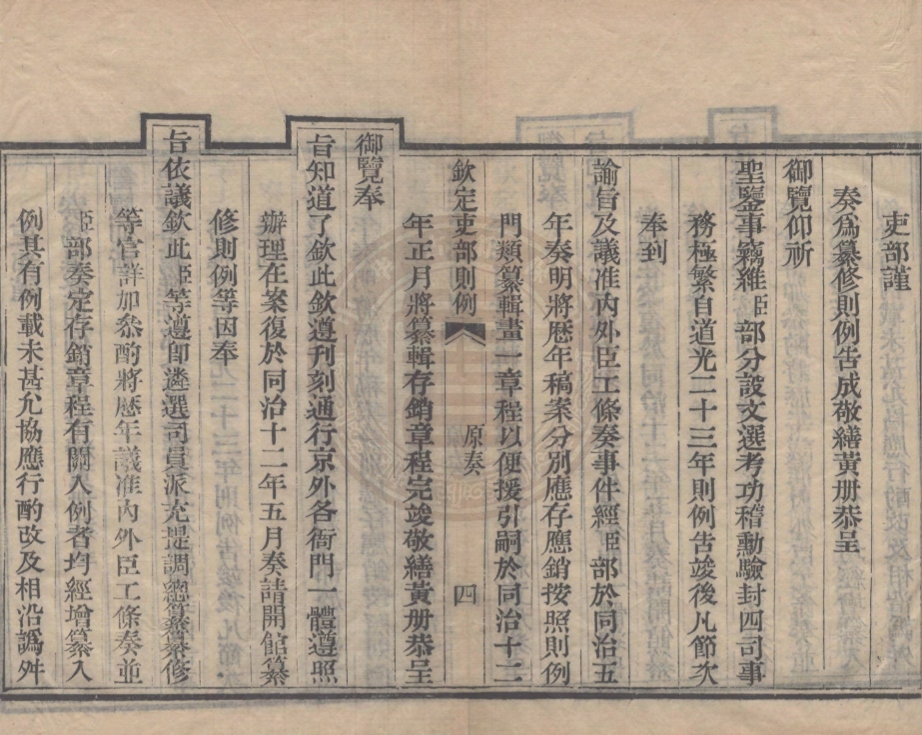 吏部謹
奏為纂修則例告成敬繕黃册恭呈
御覽仰祈
聖鑒事竊維臣部分設文選考功稽勳驗封四司事
務極繁自道光二十三年則例告竣後凡節次
奉到
諭旨及議准內外臣工條奏事件經臣部於同治五
年奏明將歷年稿案分別應存應銷按照則例
門類纂輯畫一章程以便援引嗣於同治十二
欽定吏部則例 原奏 四
年正月將纂輯存銷章程完竣敬繕黃册恭呈
御覽奉
旨知道了欽此欽遵刊刻通行京外各衙門一體遵照
辦理在案復於同治十二年五月奏請開館纂
修則例等因奉
旨依議欽此臣等遵卽遴選司員派充提調總纂纂修
等官詳加叅酌將歷年議准內外臣工條奏並
臣部奏定存銷章程有關入例者均經增纂入
例其有例載未甚允協應行酌改及相沿譌舛